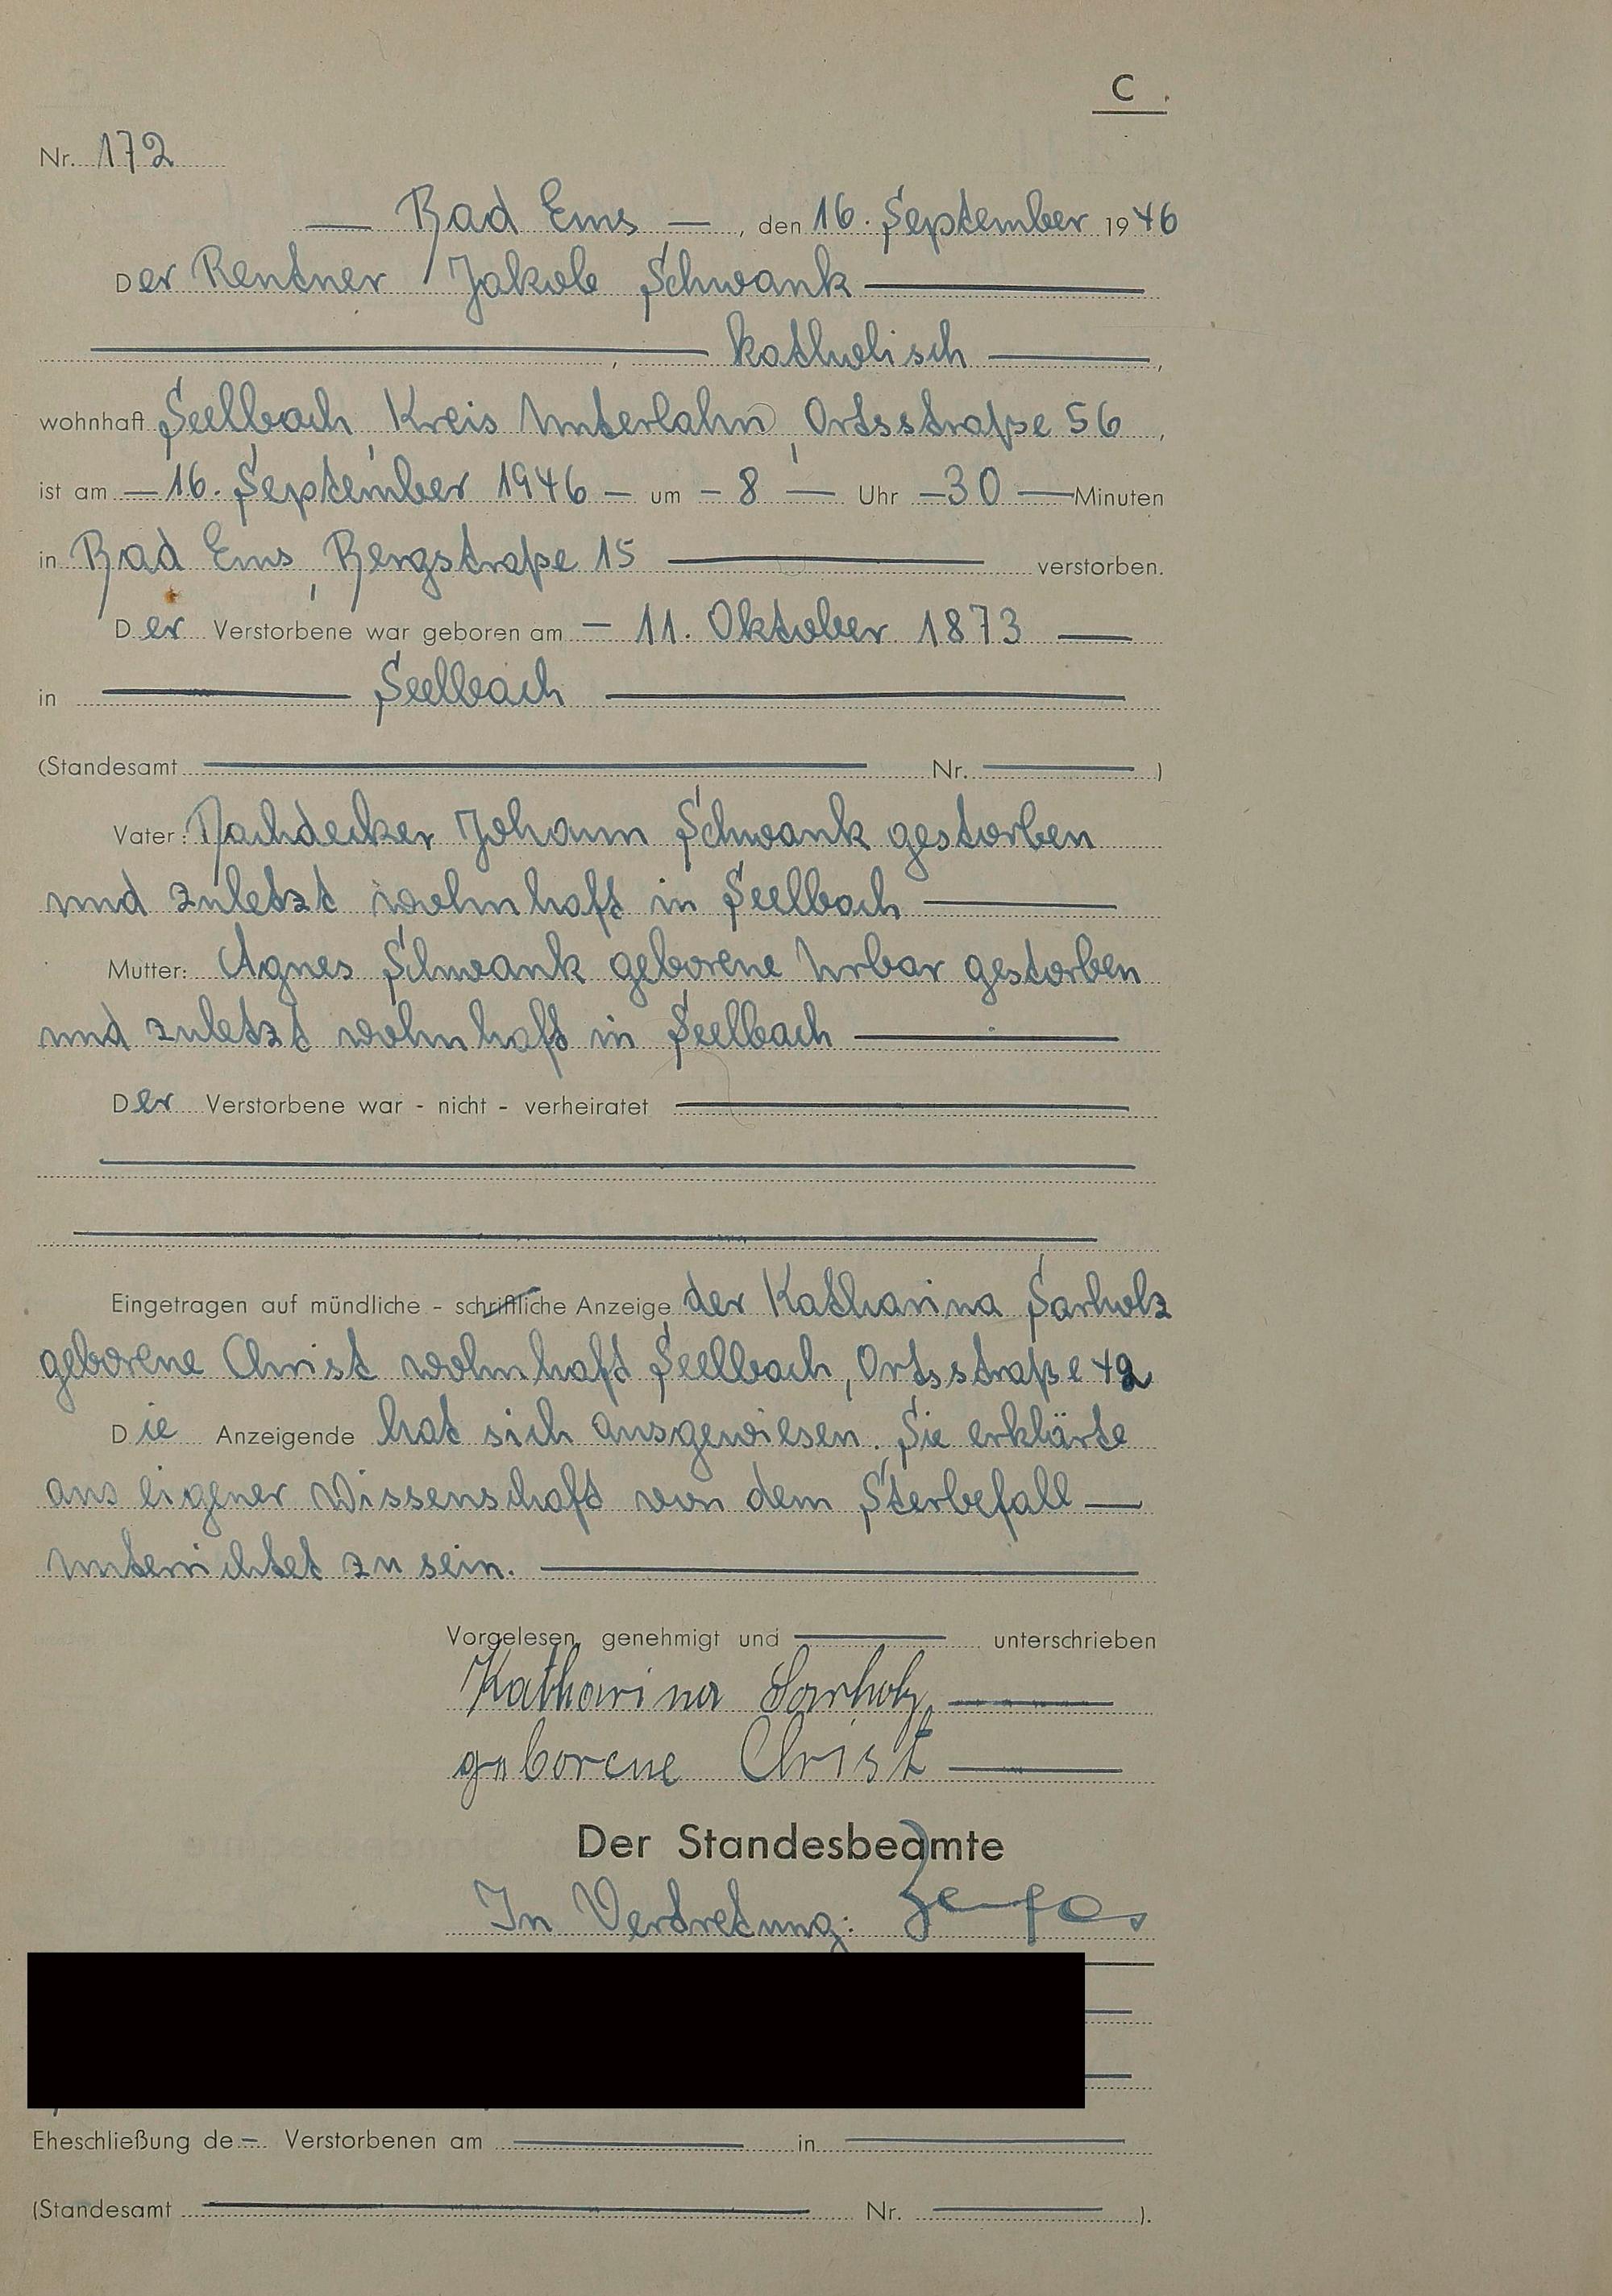 C.
Nr. 172
— Bad Ems —, den 16. September 1946
Der Rentner Jakob Schwank —
—, katholisch —,
wohnhaft Seelbach, Kreis Unterlahn, Ortsstraße 56,
ist am — 16. September 1946 — um — 8 — Uhr — 30 — Minuten
in Bad Ems, Bergstraße 15 — verstorben.
Der Verstorbene war geboren am — 11. Oktober 1873 —
in — Seelbach —
(Standesamt — Nr. —)
Vater: Dachdecker Johann Schwank gestorben
und zuletzt wohnhaft in Seelbach —
Mutter: Agnes Schwank geborene Urbar gestorben
und zuletzt wohnhaft in Seelbach —
Der Verstorbene war - nicht - verheiratet —
Eingetragen auf mündliche - schriftliche Anzeige der Katharina Sarholz
geborene Christ wohnhaft Seelbach, Ortsstraße 42
Die Anzeigende hat sich ausgewiesen. Sie erklärte
aus eigener Wissenschaft von dem Sterbefall —
unterrichtet zu sein. —
Vorgelesen, genehmigt und — unterschrieben
Katharina Sarholz —
geborene Christ —
Der Standesbeamte
In Vertretung:
Eheschließung de — Verstorbenen am — in —
(Standesamt — Nr. —).